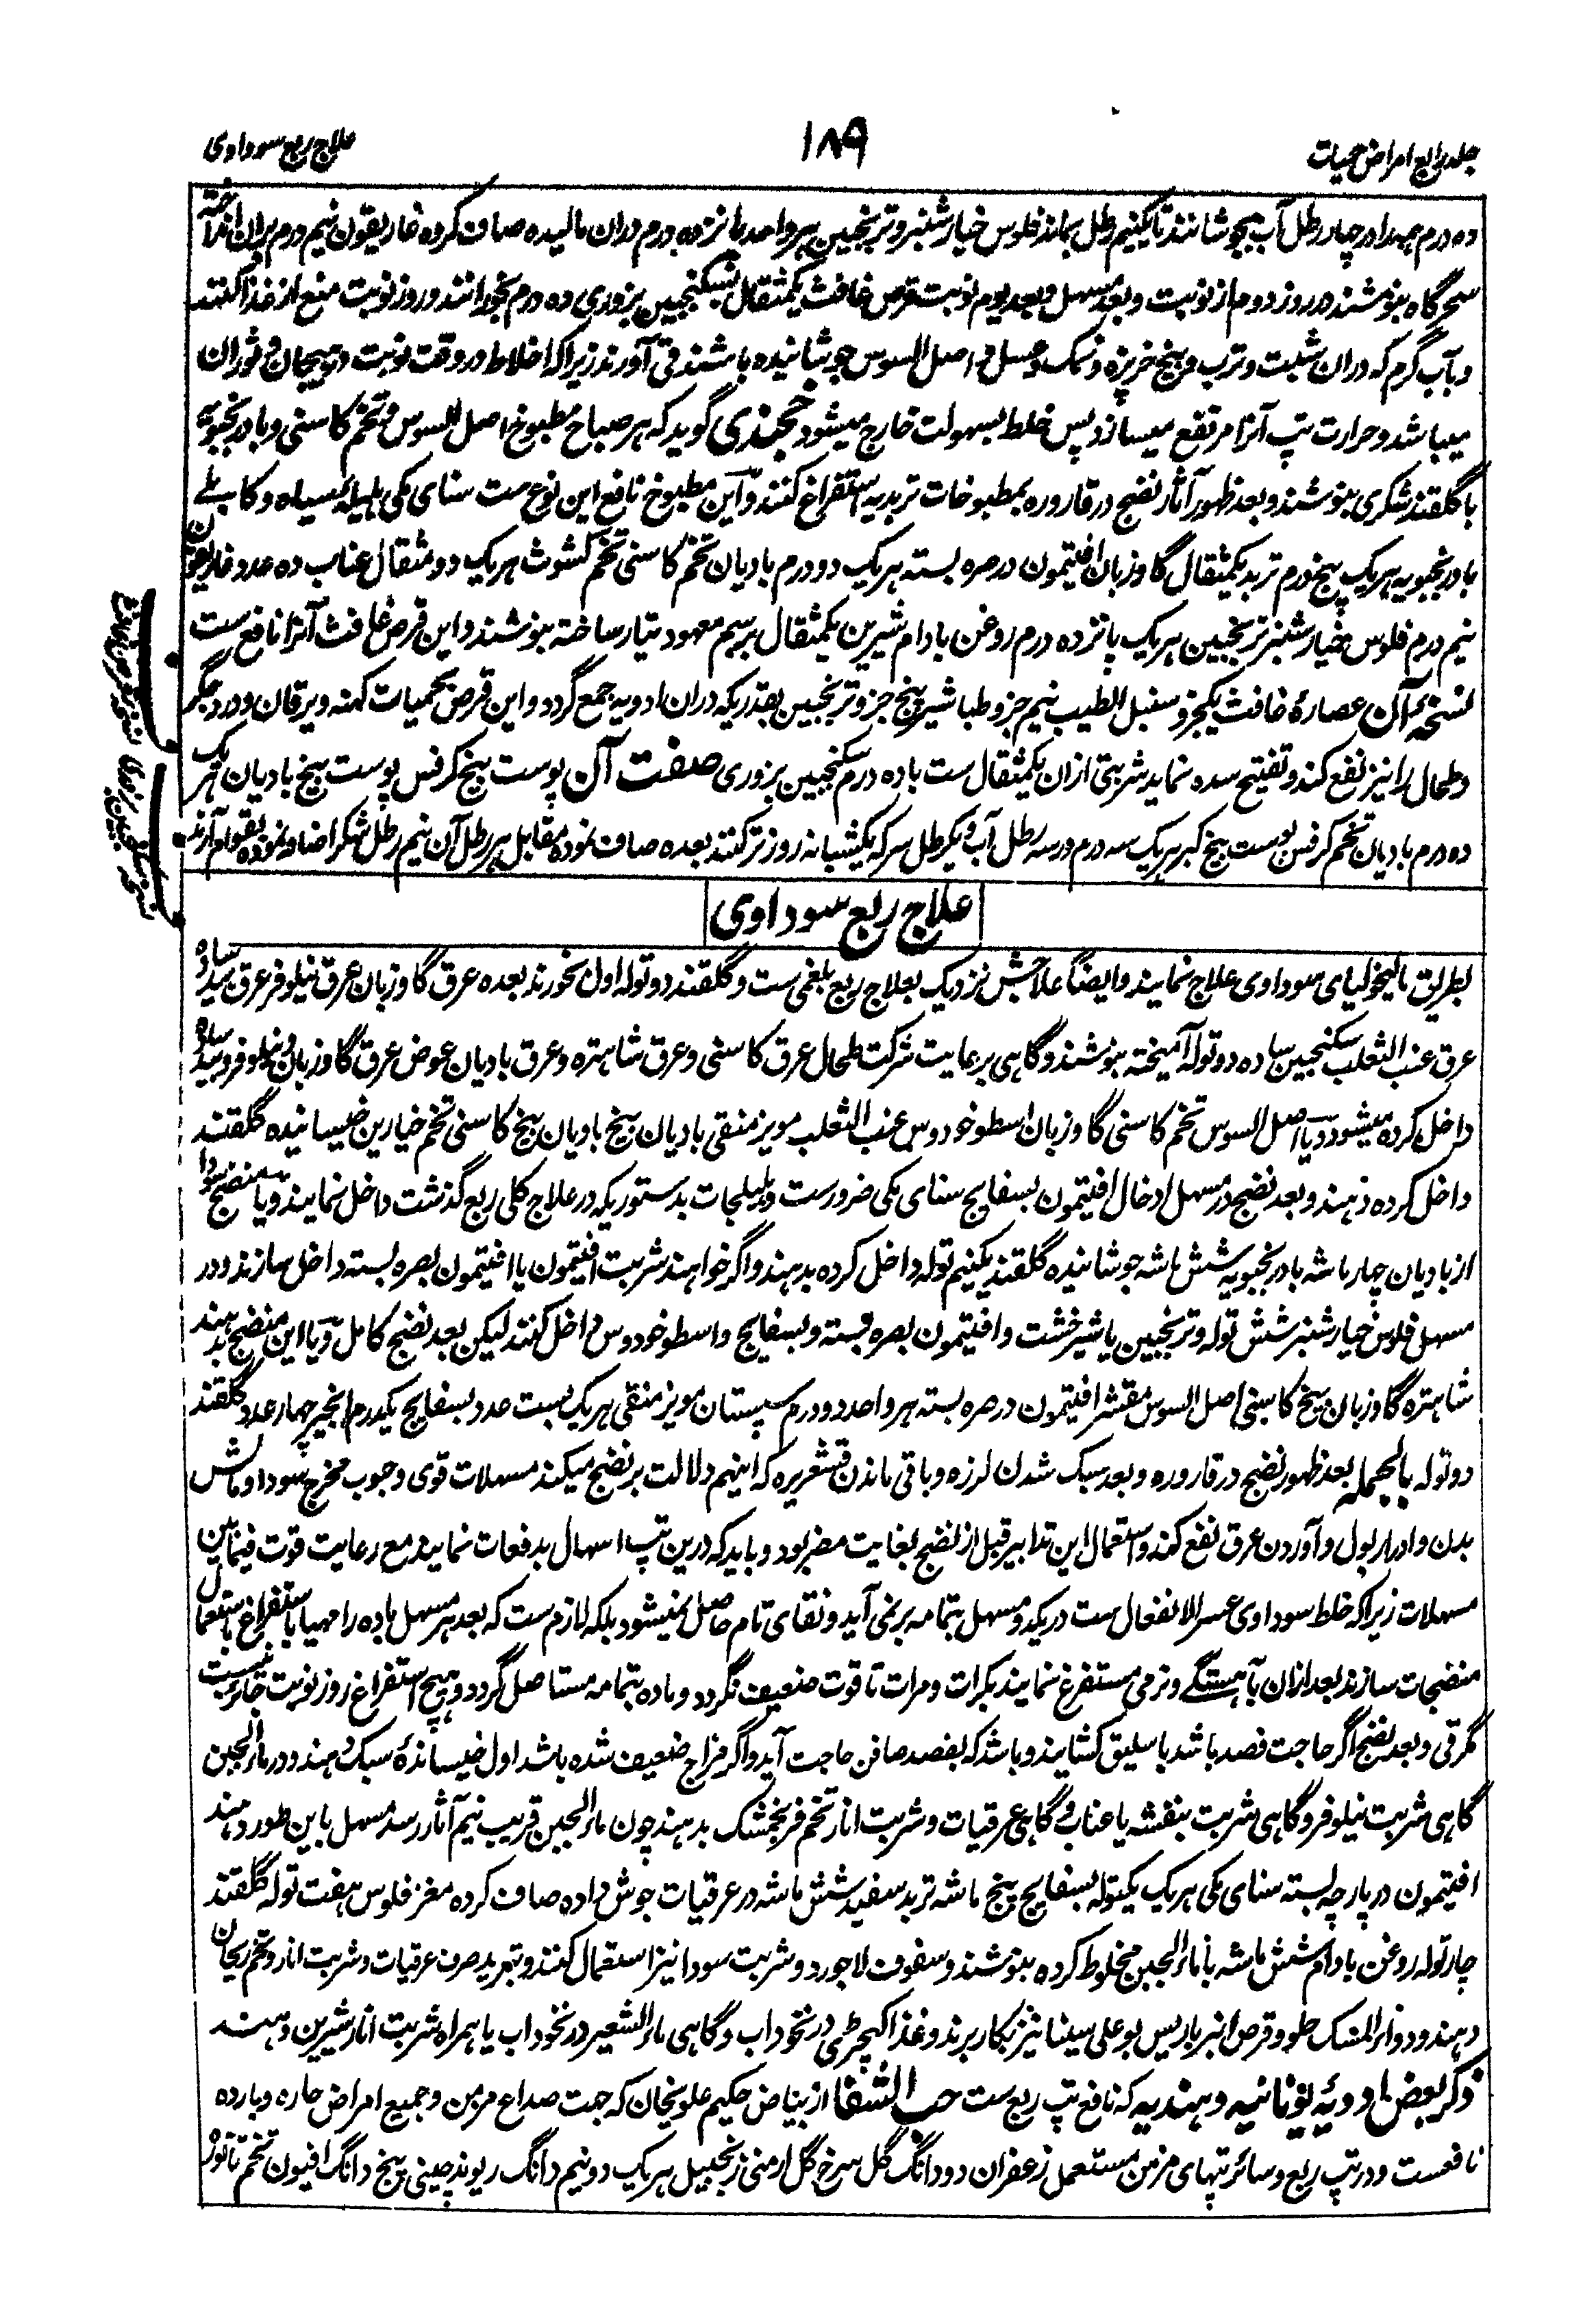 جلد رابع امراض حمیات
۱۸۹
علاج ربع سوداوی
ده درم همه را در چهار رطل آب بجوشانند تا یکنیم رطل بماند فلوس خیارشنبر و ترنجبین هر واحد پانزده درم دران مالیده صاف کرده غاریقون نیم درم بران انداخته
سحرگاه بنوشند در روز دوم از نوبت و بعد مسهل و بعد یوم نوبت قرص غافث یکمثقال بسکنجبین بزوری ده درم بخورانند و روز نوبت منع از غذا کنند
و بآب گرم که دران شبت و ترب و بیخ خربزه و نمک و عسل و اصل السوس جوشانیده باشند قی آورند زیرا که اخلاط در وقت نوبت در هیجان و ثوران
میباشد و حرارت تپ آنرا مرتفع میسازد پس خلط بسهولت خارج میشود خجندی گوید که هر صباح مطبوخ اصل السوس و تخم کاسنی و بادرنجبویه
با گلقند شکری بنوشند و بعد ظهور آثار نضج در قاروره بمطبوخات تربدیه استفراغ کنند و این مطبوخ نافع این نوع ست سنای مکی هلیله سیاه و کابلے
بادرنجبویه هر یک پنجدرم تربد یکمثقال گاوزبان افتیمون در صره بسته هر یک دو درم بادیان تخم کاسنی تخم کشوث هر یک دو مثقال عناب ده عدد غاریقون
نیم درم فلوس خیارشنبر ترنجبین هر یک پانزده درم روغن بادام شیرین یکمثقال برسم معهود تیار ساخته بنوشند و این قرص غافث آنرا نافع ست
نسخه آن عصارهٔ غافث یکجزو سنبل الطیب نیم جزو طباشیر پنج جزو ترنجبین بقدریکه دران ادویه جمع گردد و این قرص بحمیات کهنه و یرقان و درد جگر
و طحال را نیز نفع کند و تفتیح سده نماید شربتی ازان یکمثقال ست باده درم سکنجبین بزوری صفت آن پوست بیخ کرفس پوست بیخ بادیان هر یک
ده درم بادیان تخم کرفس پوست بیخ کبر هر یک سه درم در سه رطل آب و یکرطل سرکه یکشبانه روز تر کنند بعده صاف نموده مقابل هر رطل آن نیم رطل شکر اضافه نموده بقوام آرند
علاج ربع سوداوی
بطریق مالیخولیای سوداوی علاج نمایند و ایضاً علاجش نزدیک بعلاج ربع بلغمی ست و گلقند دو توله اول بخورند بعده عرق گاوزبان عرق نیلوفر عرق بیدساده
عرق عنب الثعلب سکنجبین ساده دو توله آمیخته بنوشند و گاهی برعایت شرکت طحال عرق کاسنی و عرق شاهتره و عرق بادیان عوض عرق گاوزبان و نیلوفر و بیدساده
داخل کرده میشود و یا اصل السوس تخم کاسنی گاوزبان اسطوخودوس عنب الثعلب مویز منقی بادیان بیخ بادیان بیخ کاسنی تخم خیارین خیسانیده گلقند
داخل کرده دهند و بعد نضج در مسهل ادخال افتیمون بسفایج سنای مکی ضرورست و هلیلجات بدستوریکه در علاج کلی ربع گذشت داخل نمایند و یا منضج سودا
از بادیان چهار ماشه بادرنجبویه شش ماشه جوشانیده گلقند یکنیم توله داخل کرده بدهند و اگر خواهند شربت افتیمون یا افتیمون بصره بسته داخل سازند و در
مسهل فلوس خیارشنبر شش توله و ترنجبین یا شیرخشت و افتیمون بصره بسته و بسفایج و اسطوخودوس داخل کنند لیکن بعد نضج کامل و یا این منضج بدهند
شاهتره گاوزبان بیخ کاسنی اصل السوس مقشر افتیمون در صره بسته هر واحد دو درم سپستان مویز منقی هر یک بست عدد بسفایج یکدرم انجیر چهار عدد گلقند
دو توله بالجمله بعد ظهور نضج در قاروره و بعد سبک شدن لرزه و باقی ماندن قشعریره که اینهم دلالت بر نضج میکند مسهلات قوی و حبوب مخرج سودا و مالش
بدن و ادرار بول و آوردن عرق نفع کند و استعمال این تدابیر قبل از نضج بغایت مضر بود و باید که درین تپ اسهال بدفعات نمایند مع رعایت قوت فیما بین
مسهلات زیرا که خلط سوداوی عسر الانفعال ست در یکدو مسهل بتمامه برنمی آید و نقای تام حاصل نمیشود بلکه لازم ست که بعد هر مسهل ماده را مهیا باستفراغ باستعمال
منضجات سازند بعد ازان بآهستگے و نرمی مستفرغ نمایند بکرات و مرات تا قوت ضعیف نگردد و ماده بتمامه مستاصل گردد و هیچ استفراغ روز نوبت جائز نیست
مگر قی و بعد نضج اگر حاجت فصد باشد باسلیق کشایند و باشد که بفصد صافن حاجت آید و اگر مزاج ضعیف شده باشد اول خیساندهٔ سبک دهند و در ماءالجبن
گاهی شربت نیلوفر و گاهی شربت بنفشه یا عناب و گاهی عرقیات و شربت انار تخم فرنجمشک بدهند چون ماءالجبن قریب نیم آثار رسد مسهل باین طور دهند
افتیمون در پارچه بسته سنای مکی هر یک یکتوله بسفایج پنج ماشه تربد سفید شش ماشه در عرقیات جوش داده صاف کرده مغز فلوس هفت توله گلقند
چار توله روغن بادام شش ماشه با ماءالجبن مخلوط کرده بنوشند و سفوف لاجورد و شربت سودا نیز استعمال کنند و تبرید صرف عرقیات و شربت انار و تخم ریحان
دهند و دواءالمسک حلو و قرص انبرباریس بوعلی سینا نیز بکار برند و غذا کهچڑی در نخوداب و گاهی ماءالشعیر در نخوداب یا همراه شربت انار شیرین دهند
ذکر بعض ادویهٔ یونانیه و هندیه که نافع تپ ربع ست حب الشفا از بیاض حکیم علویخان که جهت صداع مزمن و جمیع امراض حاره و بارده
نافعست و در تپ ربع و سائر تپهای مزمن مستعمل زعفران دو دانگ گل سرخ گل ارمنی زنجبیل هر یک دو نیم دانگ ریوند چینی پنج دانگ افیون تخم تاتوره